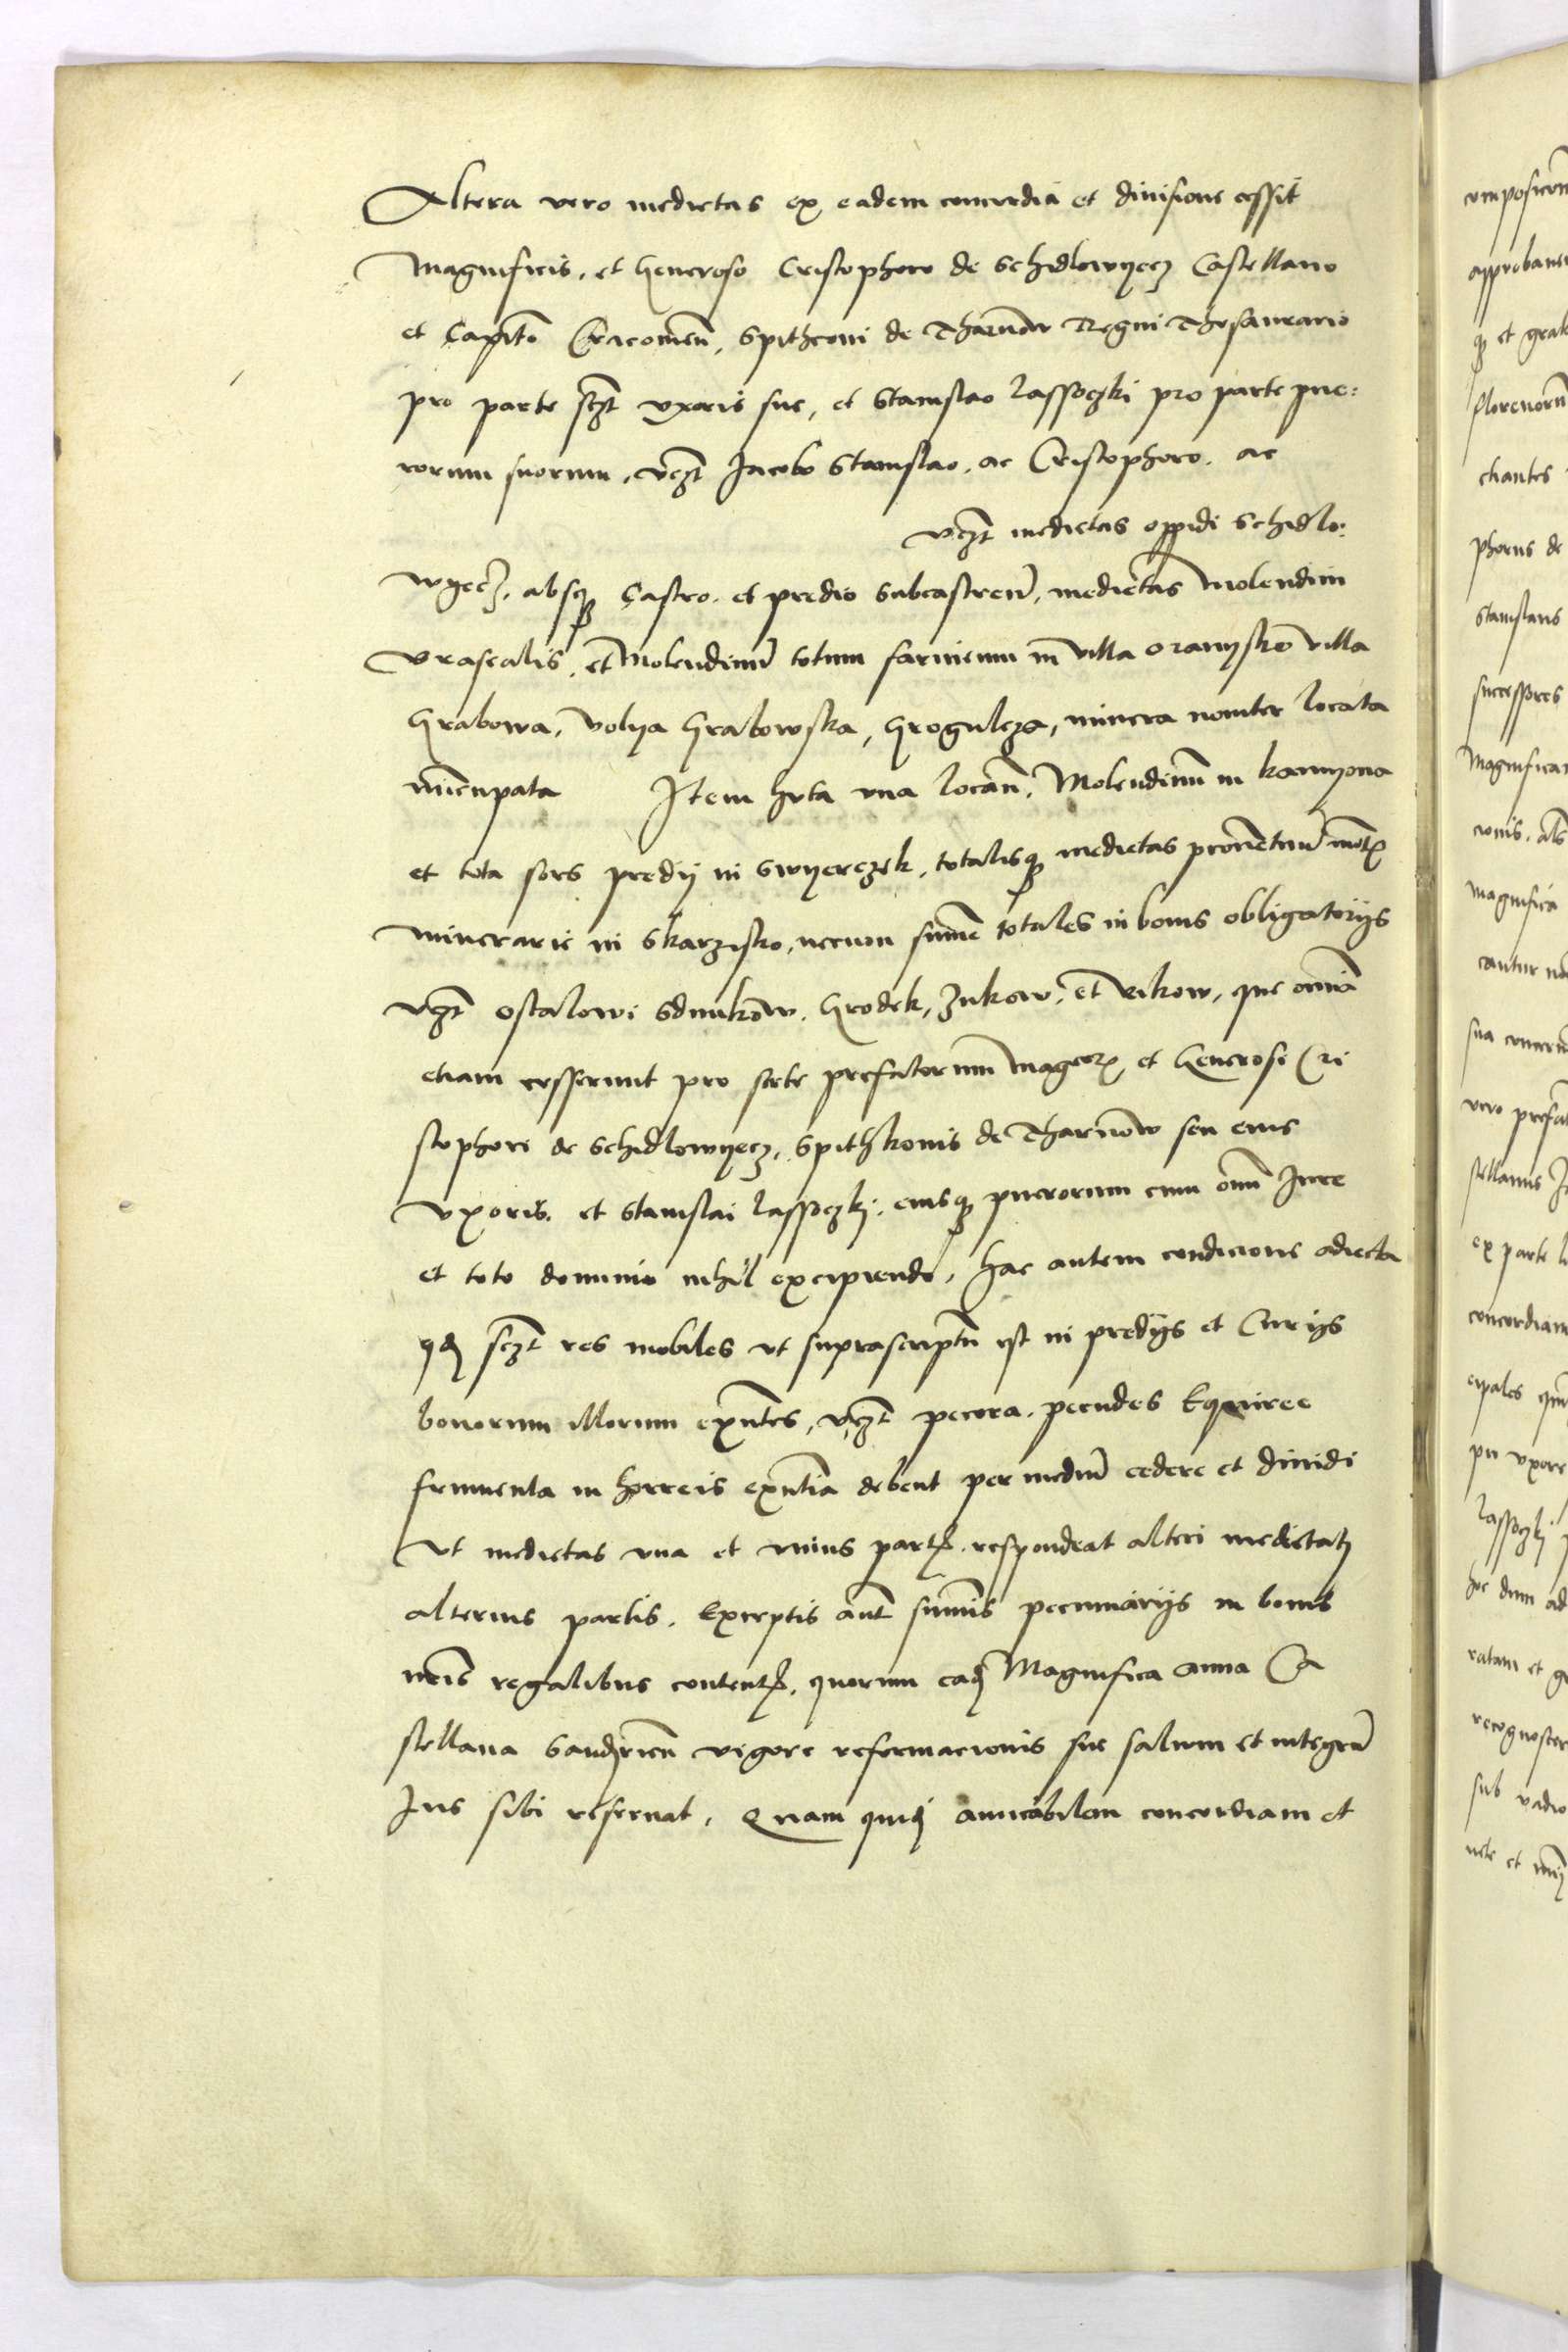 Altera vero medietas ex eadem concordia et diuisione cessit
Magnificis, et Generoso Cristophoro de Schidlowyecz Castellano
et Capito Cracouien̄, Spithconi de Tharnow Regni Thesaurario
pro parte sczt̄ vxoris sue, et Stanislao Lassoczki pro parte pue:
rorum suorum, vczt̄ Jacobo Stanislao, ac Cristophoro, ac
vczt̄ medietas oppidi Schidlo:
wyecz, absq3 Castro, et predio subcastren̄, medietas Molendini
et Molendinū totum in villa Oranysko villa
Grabowa, Volya Grabowska, Groguleza, minera nouiter locata
nūcupata Item huta vna locan̄, Molendinū in kamyona
et tota sors predij in Swyerczek, totalisq3 medietas
minerarie in Skarzisko, necnon sum̄e totales in bonis obligatorijs
vczt̄ Ostalowi Sdunkow, Grodek, Zukow, et Rikow, que om̄ia
etiam cesserunt pro sorte prefatorum et Generosi Cri
stophori de Schidlowyecz, Spithkonis de Tharnow seu eius
vxoris, et Stanislai Lassoczki, eiusq3 puerorum cum om̄i Jure
et toto dominio nihil excipiendo, hac autem condicione adiecta
qd sczt̄ res mobiles vt suprascriptū est in predijs et Curijs
bonorum illorum exn̄tes, vczt̄ pecora, pecudes Equiree
frumenta in horreis exn̄tia debent per mediū cedere et diuidi
Vt medietas vna et vnius part respondeat alteri medietati
alterius partis. Exceptis aut̄ sum̄is pecuniarijs in bonis
nr̄is regalibus content, quorum ead Magnifica Anna Ca
stellana Sandomirien̄ vigore reformacionis sue saluum et integrū
Jus sibi reseruat. Quam quid amicabilem concordiam et